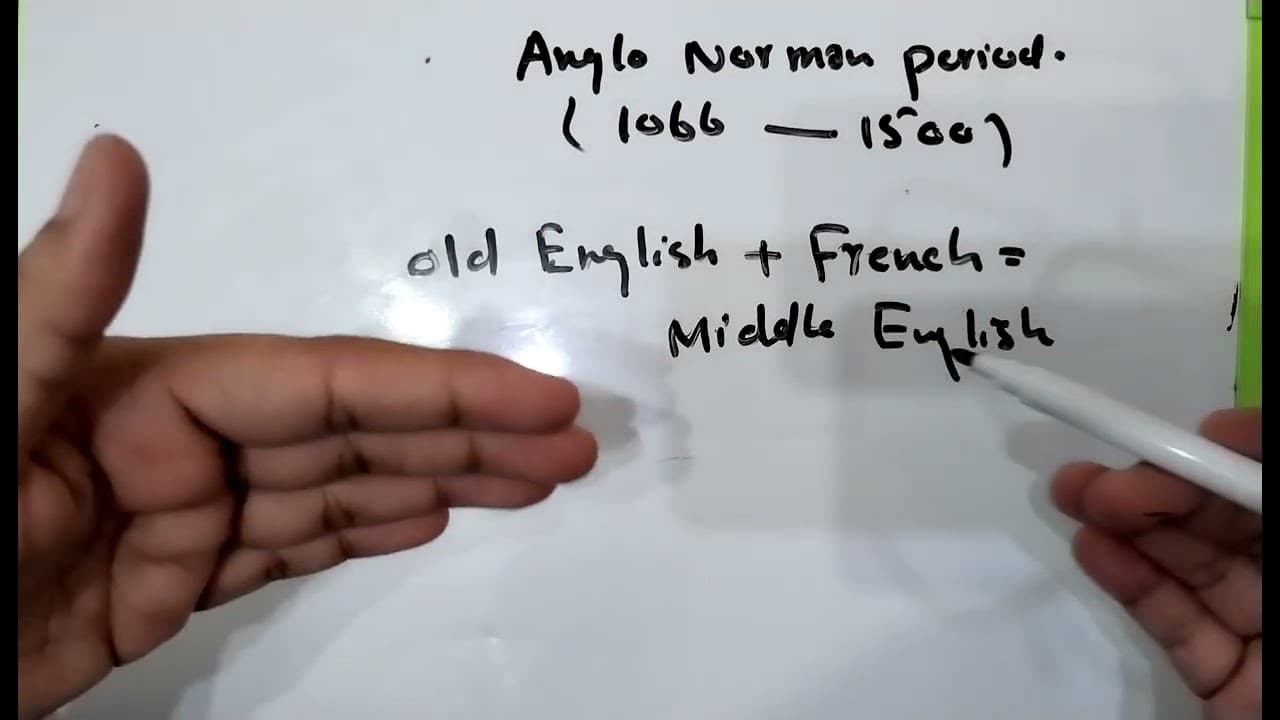 Anglo Norman period.
( 1066 — 1500 )
old English + French =
Middle English